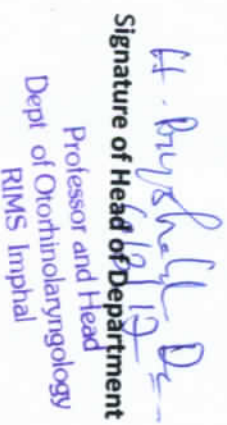 Signature of Head of Department
Professor and Head
Dept of Otorhinolaryngology
RIMS Imphal